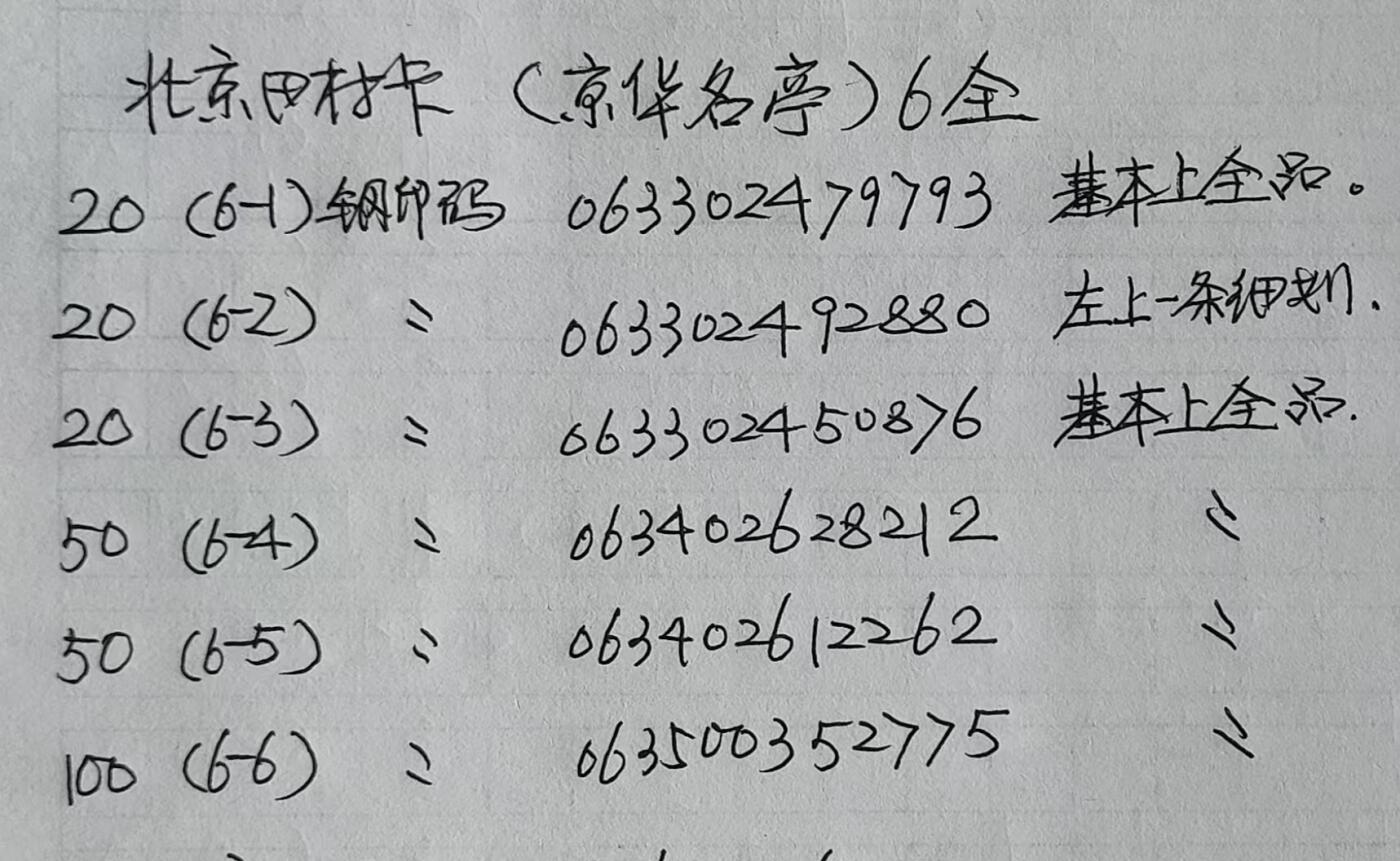 北京田村卡（京华名亭）6全
20 (6-1) 钢印码 063302479793 基本上全品。
20 (6-2) 〃 063302492880 左上一条细划.
20 (6-3) 〃 063302450876 基本上全品.
50 (6-4) 〃 063402628212 〃
50 (6-5) 〃 063402612262 〃
100 (6-6) 〃 063500352775 〃